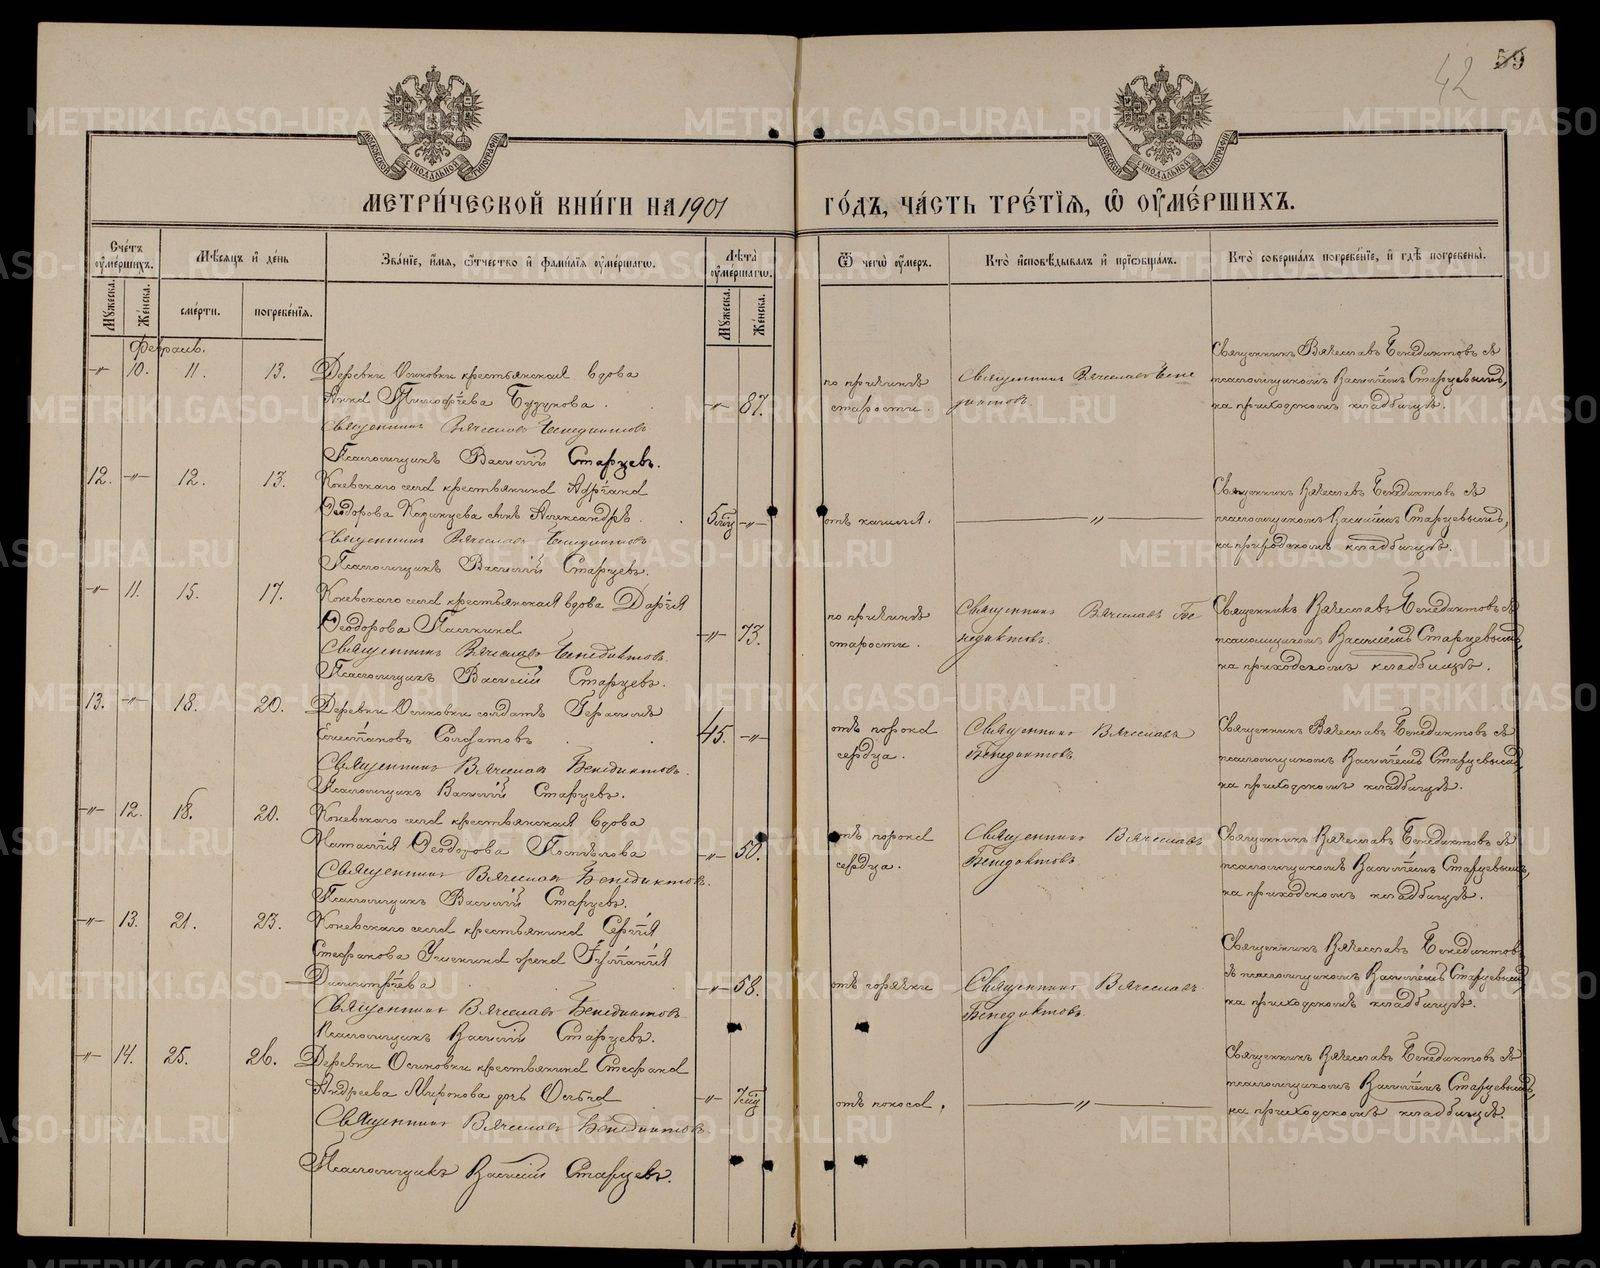 42
59
МЕТРИ́ЧЕСКОЙ КНИ́ГИ НА 1901
ГО́ДЪ, ЧА́СТЬ ТРЕ́ТІЯ, Ѡ҆ ОУ҆МЕ́РШИХЪ.
МОСКОВСКОЙ СѴНОДАЛЬНОЙ ТИПОГРАФІИ
МОСКОВСКОЙ СѴНОДАЛЬНОЙ ТИПОГРАФІИ
Сче́тъ оу҆ме́ршихъ.
Мѣсяцъ и҆ де́нь
Зва́нїе, и҆́мя, ѻ҆́тчество и҆ фами́лїя оу҆ме́ршагѡ.
Лѣта̀ оу҆ме́ршагѡ.
Ѿ чегѡ̀ оу҆́меръ.
Кто̀ и҆сповѣ́дывалъ и҆ прїѡбща́лъ.
Кто̀ соверша́лъ погребе́нїе, и҆ гдѣ̀ погребены̀.
Мꙋ́жеска.
Же́нска.
сме́рти.
погребе́нїя.
Мꙋ́жеска.
Же́нска.
Февраль.
-"- 10. 11. 13. Деревни Осиновки крестьянская вдова
Анна Тимофѣева Бузунова. -"- 87.
Священникъ Вячеславъ Бенедиктовъ
Псаломщикъ Василій Старцевъ.
по причинѣ
старости.
Священникъ Вячеславъ Бене
диктовъ.
Священникъ Вячеславъ Бенедиктовъ съ
псаломщикомъ Василіемъ Старцевымъ,
на приходскомъ кладбищѣ.
12. -"- 12. 13. Коневскаго села крестьянина Адріана
Ѳеодорова сынъ Александръ. 5 -"-
Священникъ Вячеславъ Бенедиктовъ
Псаломщикъ Василій Старцевъ.
отъ кашля.
-"-
Священникъ Вячеславъ Бенедиктовъ съ
псаломщикомъ Василіемъ Старцевымъ,
на приходскомъ кладбищѣ.
-"- 11. 15. 17. Коневскаго села крестьянская вдова Дарія
Ѳеодорова -"- 73.
Священникъ Вячеславъ Бенедиктовъ.
Псаломщикъ Василій Старцевъ.
по причинѣ
старости.
Священникъ Вячеславъ Бе
недиктовъ.
Священникъ Вячеславъ Бенедиктовъ съ
псаломщикомъ Василіемъ Старцевымъ,
на приходскомъ кладбищѣ.
13. -"- 18. 20. Деревни Осиновки солдатъ Герасимъ
Солдатовъ. 45. -"-
Священникъ Вячеславъ Бенедиктовъ.
Псаломщикъ Василій Старцевъ.
отъ порока
сердца.
Священникъ Вячеславъ
Бенедиктовъ
Священникъ Вячеславъ Бенедиктовъ съ
псаломщикомъ Василіемъ Старцевымъ,
на приходскомъ кладбищѣ.
-"- 12. 18. 20. Коневскаго села крестьянская вдова
Наталія Ѳеодорова Поспѣлова -"- 50.
Священникъ Вячеславъ Бенедиктовъ.
Псаломщикъ Василій Старцевъ.
отъ порока
сердца.
Священникъ Вячеславъ
Бенедиктовъ
Священникъ Вячеславъ Бенедиктовъ съ
псаломщикомъ Василіемъ Старцевымъ,
на приходскомъ кладбищѣ.
-"- 13. 21. 23. Коневскаго села крестьянина Сергія
Стефанова жена Іуліанія
Димитріева -"- 58.
Священникъ Вячеславъ Бенедиктовъ
Псаломщикъ Василій Старцевъ.
отъ горячки
Священникъ Вячеславъ
Бенедиктовъ
Священникъ Вячеславъ Бенедиктовъ
съ псаломщикомъ Василіемъ Старцевымъ,
на приходскомъ кладбищѣ.
-"- 14. 25. 26. Деревни Осиновки крестьянина Стефана
Андреева Миронова дочь Ольга -"- 7
Священникъ Вячеславъ Бенедиктовъ
Псаломщикъ Василій Старцевъ.
отъ поноса.
-"-
Священникъ Вячеславъ Бенедиктовъ съ
псаломщикомъ Василіемъ Старцевымъ,
на приходскомъ кладбищѣ.
METRIKI.GASO-URAL.RU